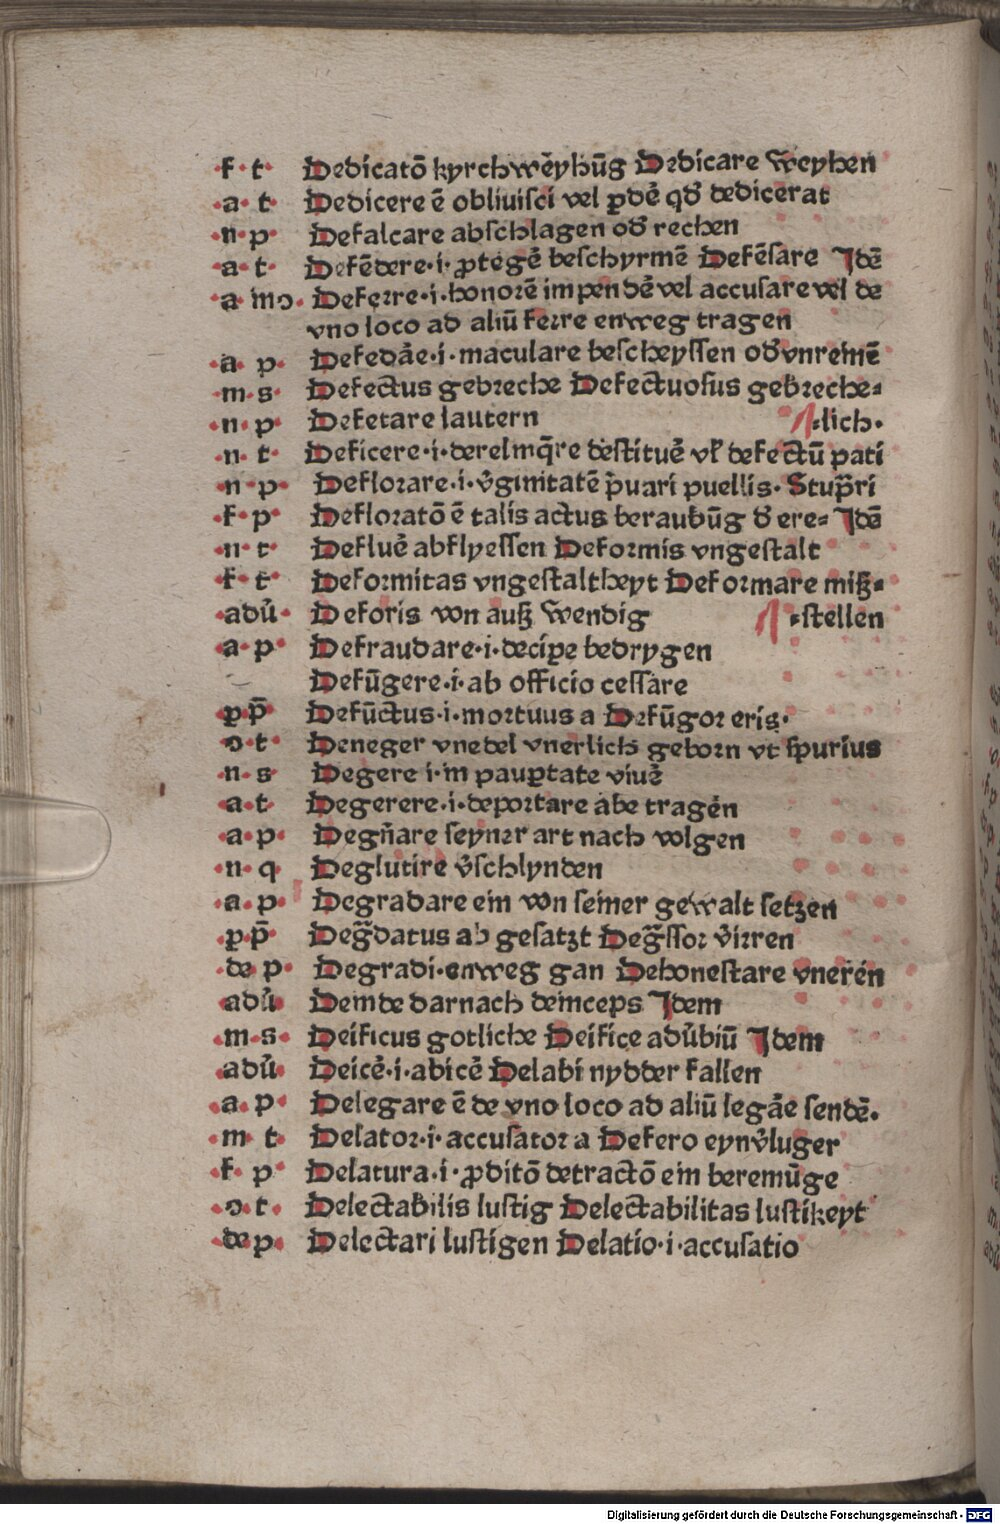 ·f· t·  Dedicatō kyrchwēyhūg Dedicare Weyhen
·a· t·  Dedicere ē oblivisci vel ꝑdē qd' dedicerat
·n· p·  Defalcare abschlagen od' rechen
·a· t·  Defēdere·i· ꝓtegē beschyrmē Defēsare Jdē
·a· mo·  Deferre·i·honorē impendē vel accusare vel de
vno loco ad aliū ferre enweg tragen
·a· p·  Defedāe·i·maculare bescheyssen od' vnreinē
·m· s·  Defectus gebreche Defectuosus gebreche=
·n· p·  Defetare lautern  =lich·
·n· t·  Deficere·i·derelinq̄re destituē vł defectū pati
·n· p·  Deflorare·i·v'ginitatē p̄uari puellis· Stup̄ri
·f· p·  Defloratō ē talis actus beraubūg d' ere= Jdē
·n· t·  Defluē abflyessen Deformis vngestalt
·f· t·  Deformitas vngestaltheyt Deformare miß=
·adū·  Deforis von auß Wendig  =stellen
·a· p·  Defraudare·i·deciꝑe bedrygen
Defūgere·i·ab officio cessare
·ꝑ p̄·  Defūctus·i·mortuus a Defūgor eris·
·o· t·  Deneger vnedel vnerlich geborn vt spurius
·n· s·  Degere i·in pauꝑtate viuē
·a· t·  Degerere·i·deportare abe tragen
·a· p·  Degn̄are seyner art nach volgen
·n· q·  Deglutire v'schlynden
·a· p·  Degradare ein von seiner gewalt setzen
·ꝑ p̄·  Deg̃datus ab gesatzt Deg̃ssor v'irren
·de p·  Degradi·enweg gan Dehonestare vneren
adū·  Deinde darnach deinceps Jdem
·m· s·  Deificus gotliche Deifice adūbiū Jdem
adū·  Deicē·i·abicē Delabi nydder fallen
·a· p·  Delegare ē de vno loco ad aliū legāe sendē·
·m· t·  Delator·i·accusator a Defero eynv'luger
·f· p·  Delatura·i·ꝓditō detractō ein beremūge
·o· t·  Delectabilis lustig Delectabilitas lustikeyt
·de p·  Delectari lustigen Delatio·i·accusatio
Digitalisierung gefördert durch die Deutsche Forschungsgemeinschaft - DFG